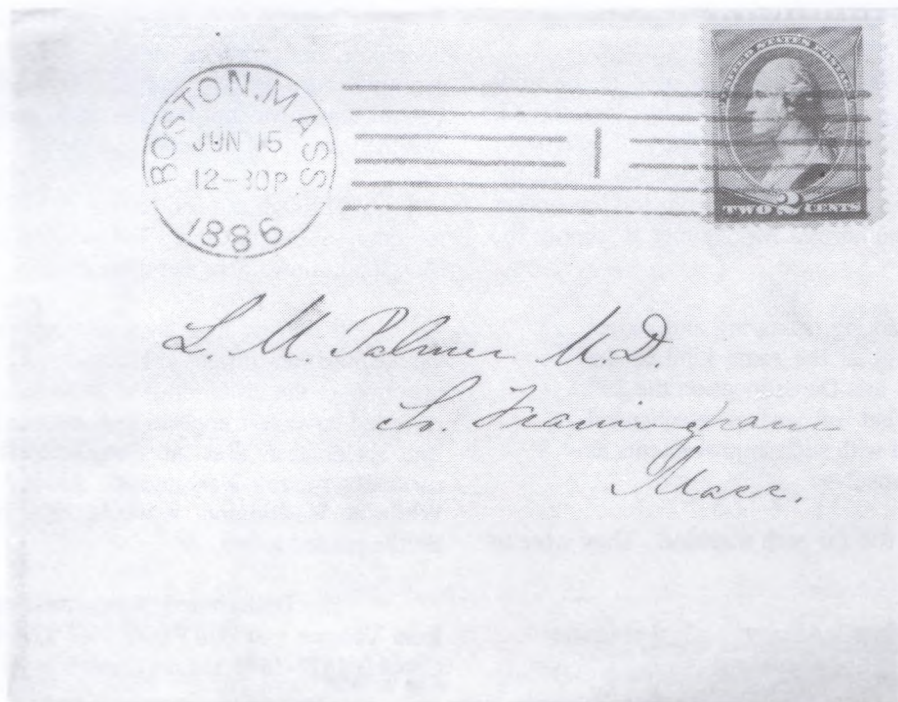 BOSTON, MASS
JUN 15
12-30P
1886
1
UNITED STATES POSTAGE
TWO 2 CENTS
L. M. Palmer M.D.
So. Framingham
Mass.